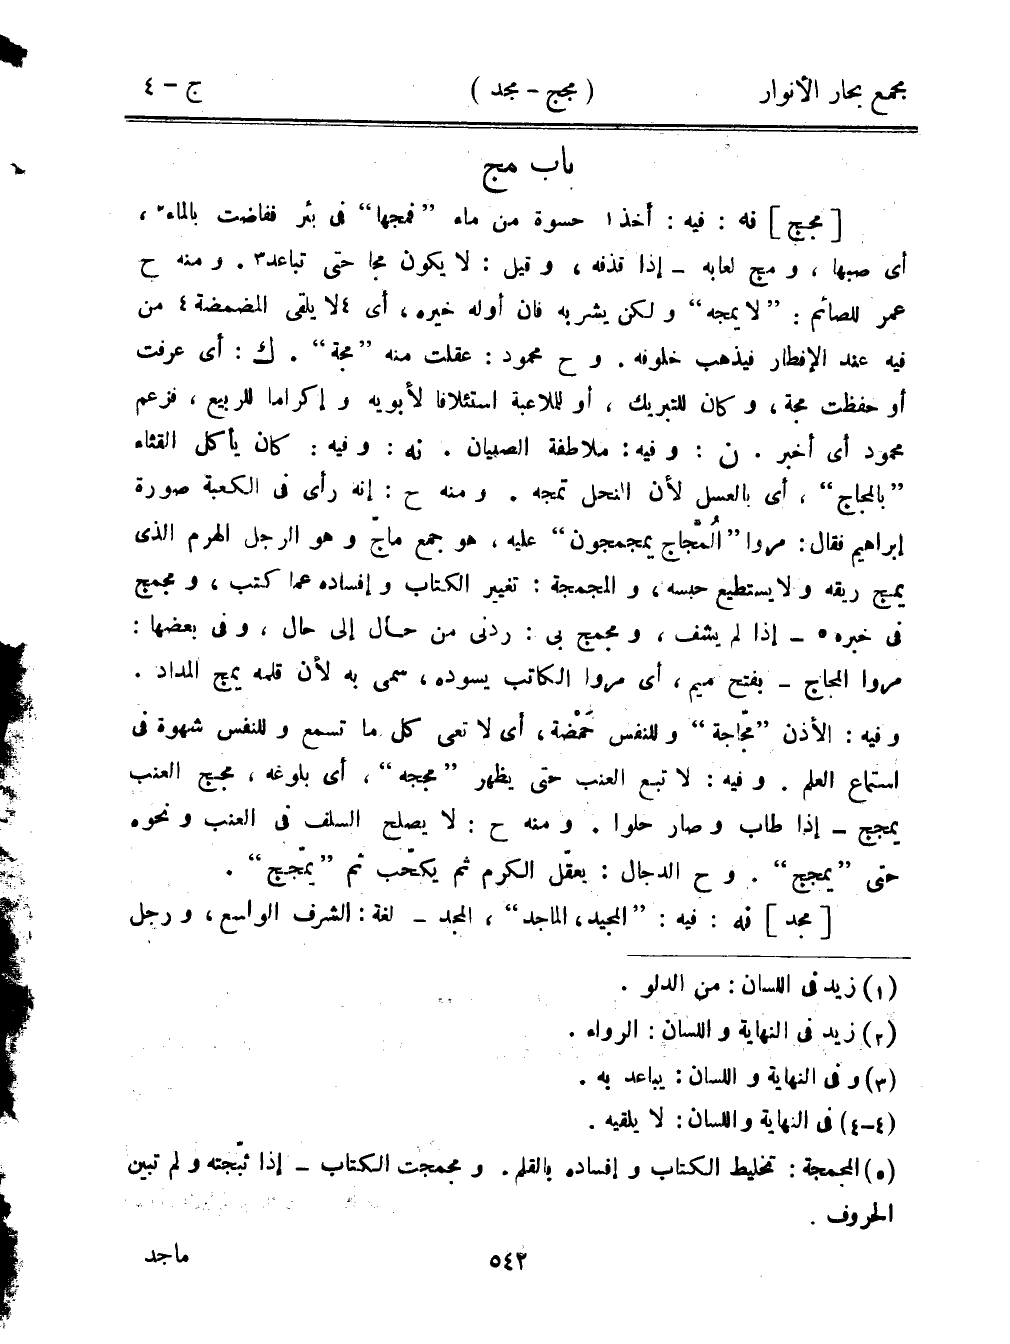 مجمع بحار الأنوار ( مجج - مجد ) ج - ٤
باب مج
[ مجج ] نه : فيه : أخذ١ حسوة من ماء ”فمجها“ فى بئر ففاضت بالماء٢ ،
أى صبها ، و مج لعابه ـ إذا قذفه ، و قيل : لا يكون مجا حتى تباعد٣ . و منه ح
عمر للصائم : ”لا يمجه“ و لكن يشربه فان أوله خيره ، أى ٤لا يلقى المضمضة٤ من
فيه عند الإفطار فيذهب خلوفه . و ح محمود : عقلت منه ”مجة“ . ك : أى عرفت
أو حفظت مجة ، و كان للتبريك ، أو للملاعبة استئلافا لأبويه و إكراما للربيع ، فزعم
محمود أى أخبر . ن : و فيه : ملاطفة الصبيان . نه : و فيه : كان يأكل القثاء
”بالمجاج“ ، أى بالعسل لأن النحل تمجه . و منه ح : إنه رأى فى الكعبة صورة
إبراهيم فقال : مروا ”المُجّاج يمجمجون“ عليه ، هو جمع ماجّ و هو الرجل الهرم الذى
يمج ريقه و لا يستطيع حبسه ، و المجمجة : تغيير الكتاب و إفساده عما كتب ، و مجمج
فى خبره٥ ـ إذا لم يشف ، و مجمج بى : ردنى من حال إلى حال ، و فى بعضها :
مروا المجاج ـ بفتح ميم ، أى مروا الكاتب يسوده ، سمى به لأن قلمه يمج المداد .
و فيه : الأذن ”مجّاجة“ و للنفس حَمْضة ، أى لا تعى كل ما تسمع و للنفس شهوة فى
استماع العلم . و فيه : لا تبع العنب حتى يظهر ”مججه“ ، أى بلوغه ، مجج العنب
يمجج ـ إذا طاب و صار حلوا . و منه ح : لا يصلح السلف فى العنب و نحوه
حتى ”يمجج“ . و ح الدجال : يعقّل الكرم ثم يكحّب ثم ”يمّجج“ .
[ مجد ] نه : فيه : ”المجيد ، الماجد“ ، المجد ـ لغة : الشرف الواسع ، و رجل
(١) زيد فى اللسان : من الدلو .
(٢) زيد فى النهاية و اللسان : الرواء .
(٣) و فى النهاية و اللسان : يباعد به .
(٤-٤) فى النهاية و اللسان : لا يلقيه .
(٥) المجمجة : تخليط الكتاب و إفساده بالقلم . و مجمجت الكتاب ـ إذا ثبّجته و لم تبين
الحروف .
٥٤٢ ماجد